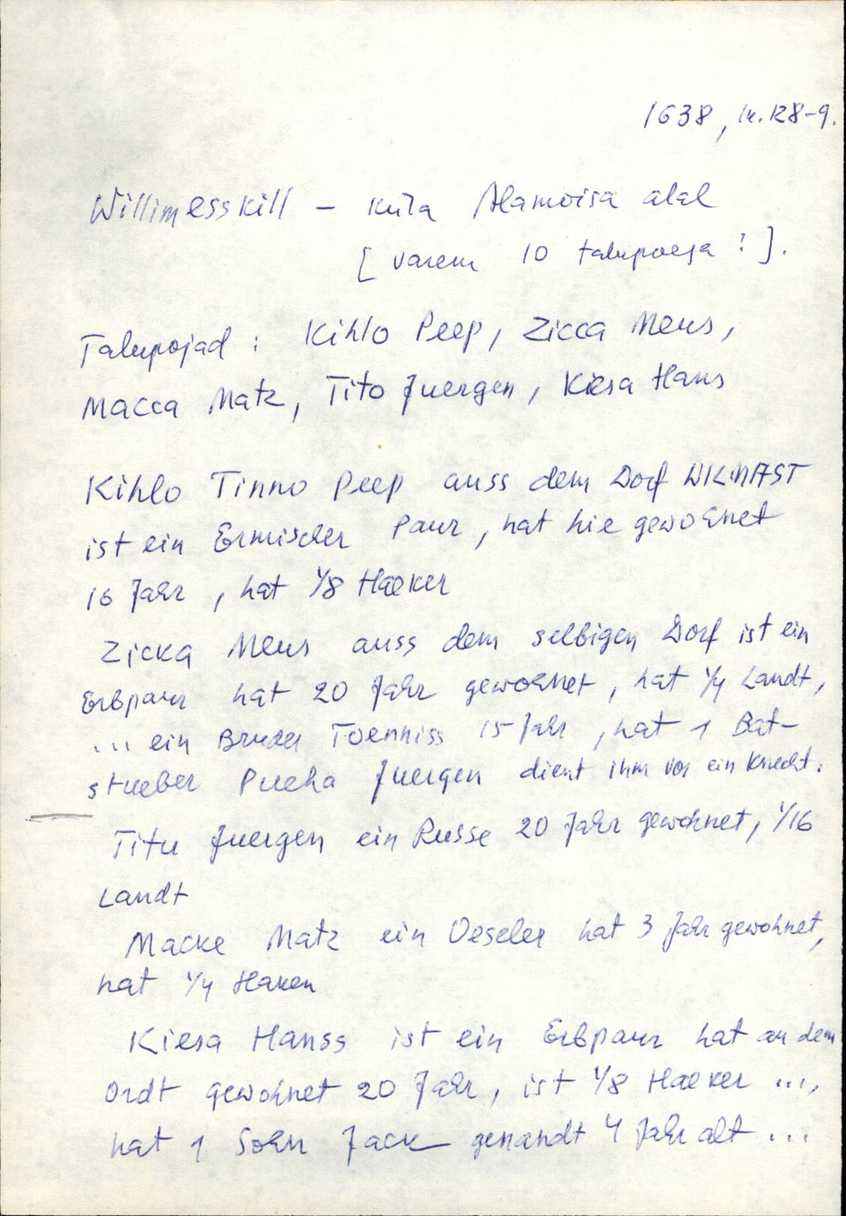 1638, lk. 128-9.
Willimesskill – küla Alamoisa alal
[ varem 10 talupoega ! ].
Talupojad : Kihlo Peep, Zicca Meus,
Macca Matz, Tito Juergen, Kiesa Hans
Kihlo Tinno Peep auss dem Dorf
ist ein Ermischer Paur, hat hie gewohnet
16 Jahr, hat 1/8 Haeker
Zicka Meus auss dem selbigen Dorf ist ein
Erbpaur hat 20 Jahr gewohnet, hat 1/4 Landt,
... ein Bruder Toenniss 15 Jahr, hat 1 Bat-
stueber Pueha Juergen dient ihm vor ein Knecht.
Titu Juergen ein Russe 20 Jahr gewohnet, 1/16
Landt
Macke Matz ein Oeseler hat 3 Jahr gewohnet,
hat 1/4 Haken
Kiesa Hanss ist ein Erbpaur hat an dem
Ordt gewohnet 20 Jahr, ist 1/8 Haeker ...,
hat 1 Sohn Jack genandt 4 Jahr alt ...